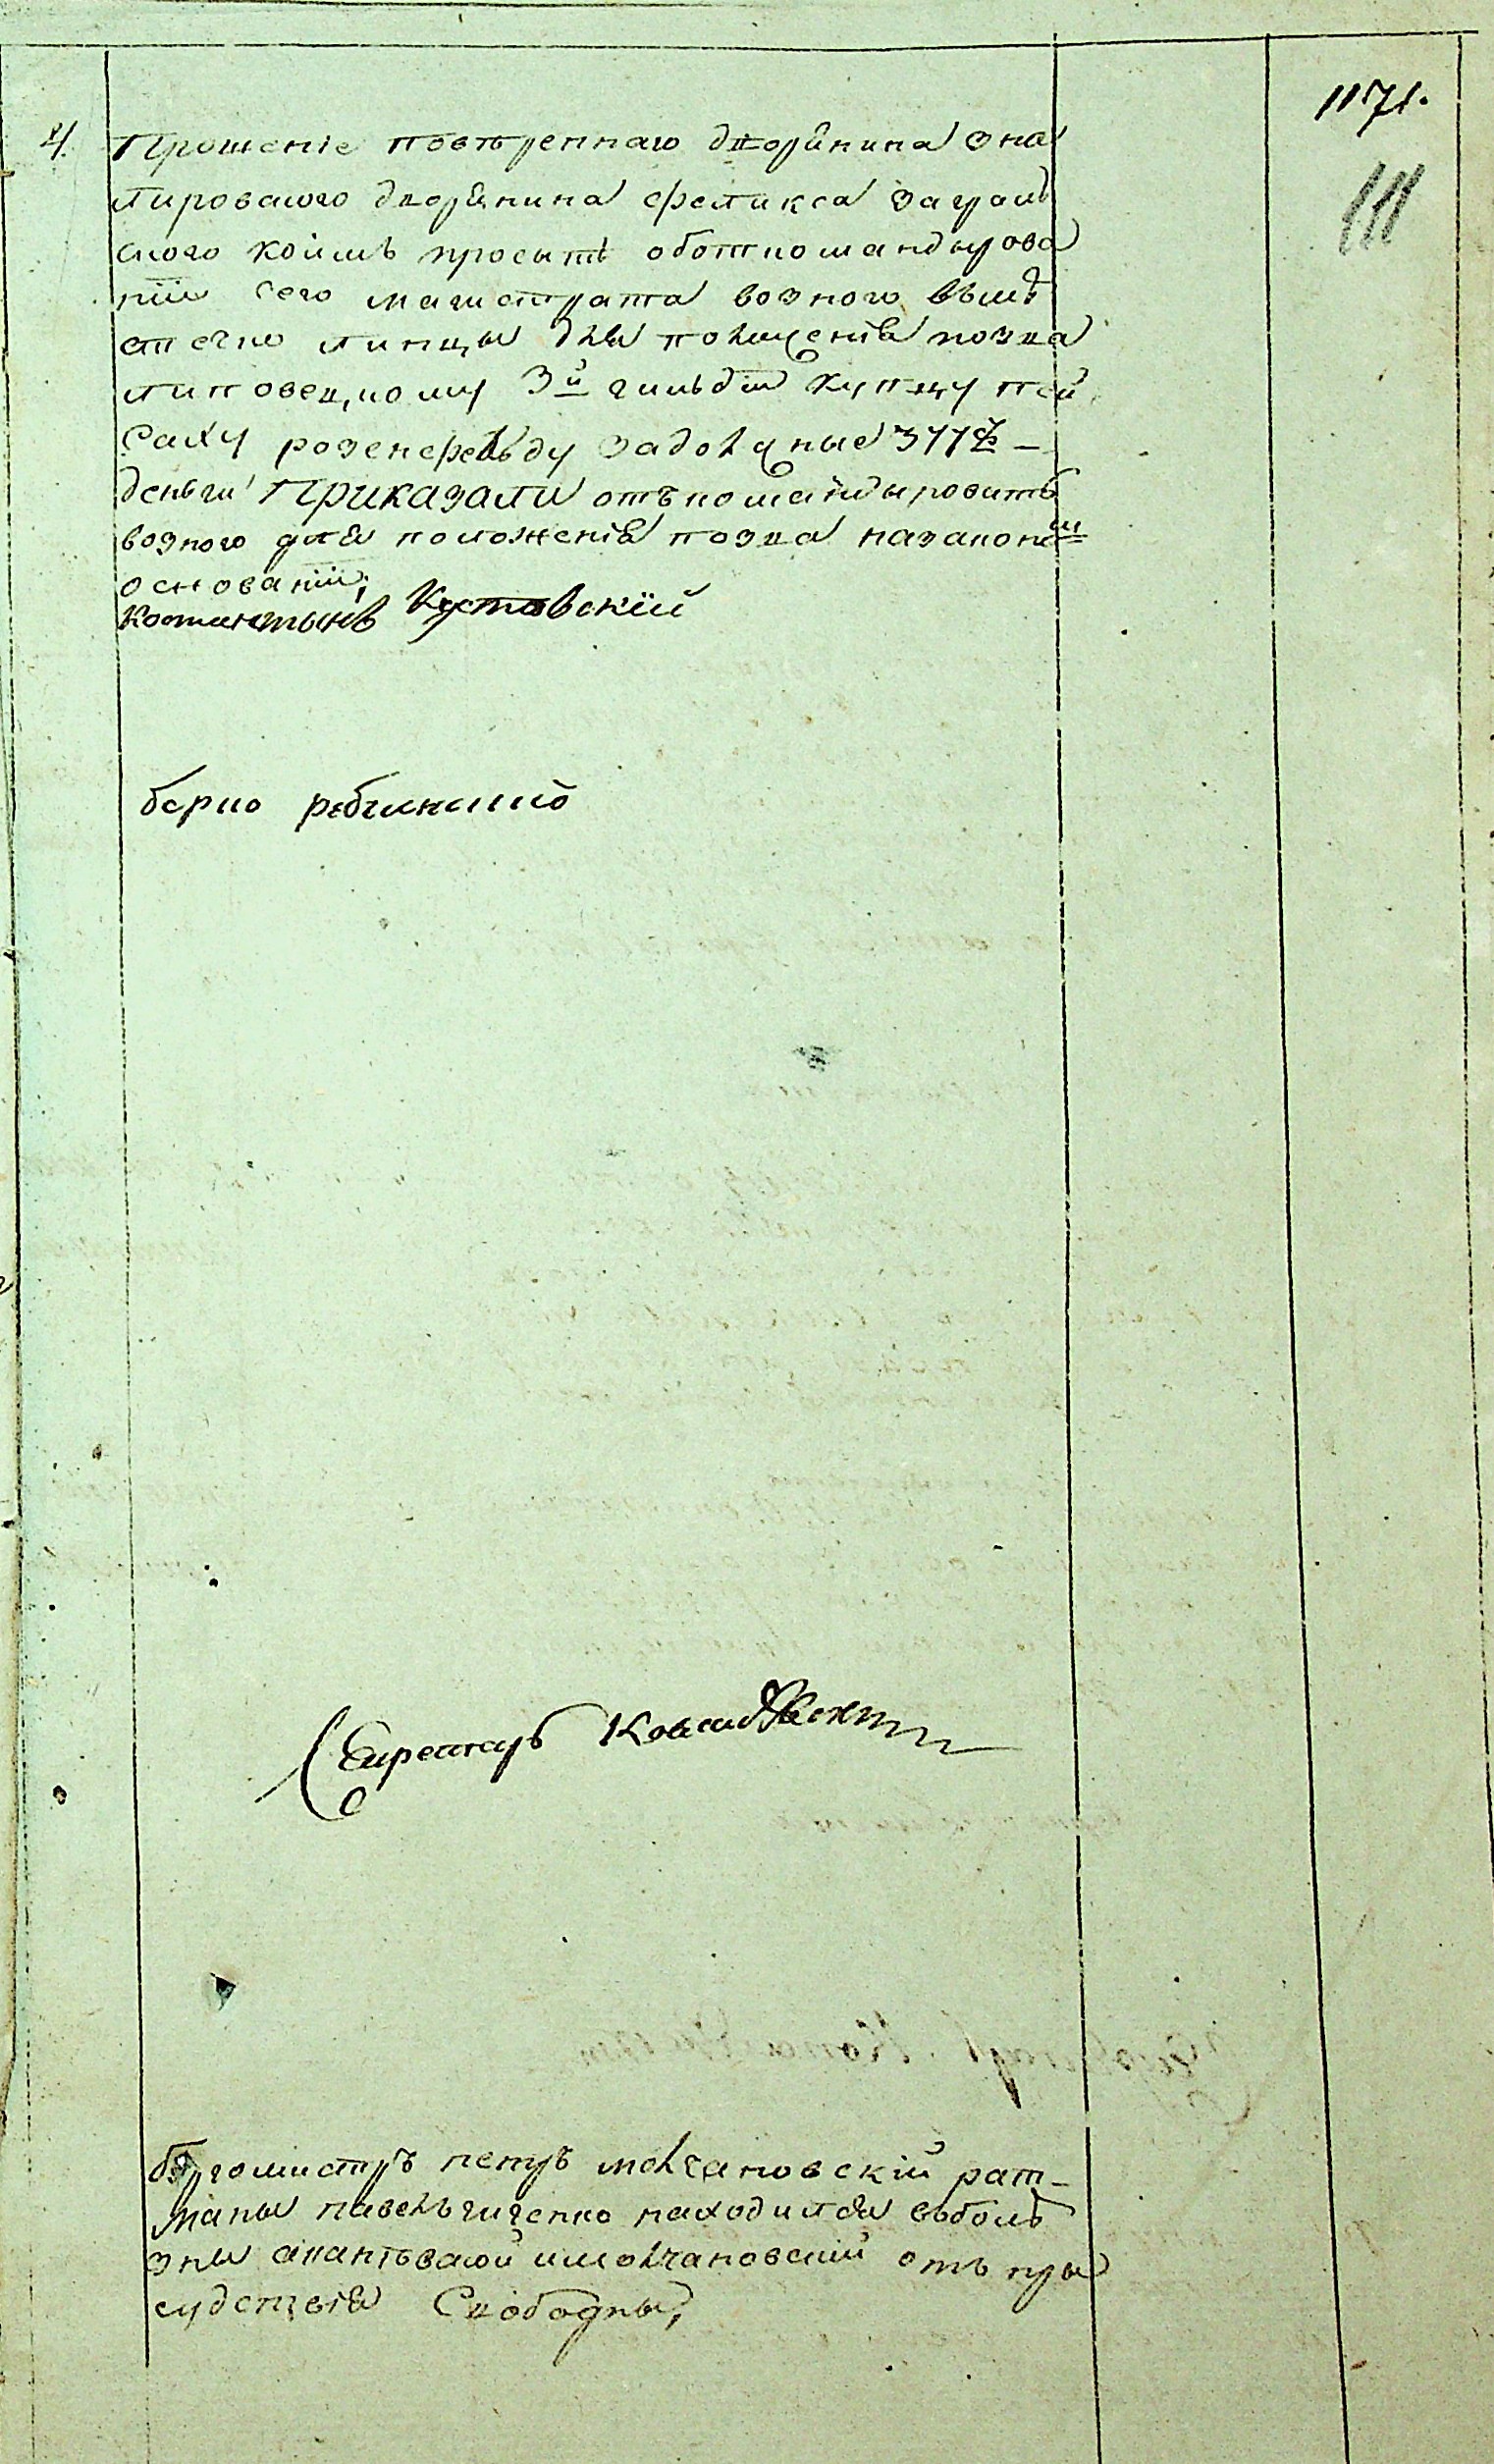 1171.
111
4. Прошеніе повѣреннаго дворянина Зна
лировского дворянина феликса Заграль
ского коимъ просытъ оботкомандырова
ніи сего магистрата возного въмѣ
стечко линцы для положенія позва
липовецкому 3й гильдіи купцу пей
саху розенфельду задолжные
деньги Приказали отъкомандыровать
возного для положенія позва назаконом
основаніи;
Костантынъ Кустовскій
берко рабчинский
Секретарь
бургомистръ петръ молчановскій рат-
маны павелъ гигенко находится въболѣ
зны и молчановскій отъ пры
судствія Свободны,